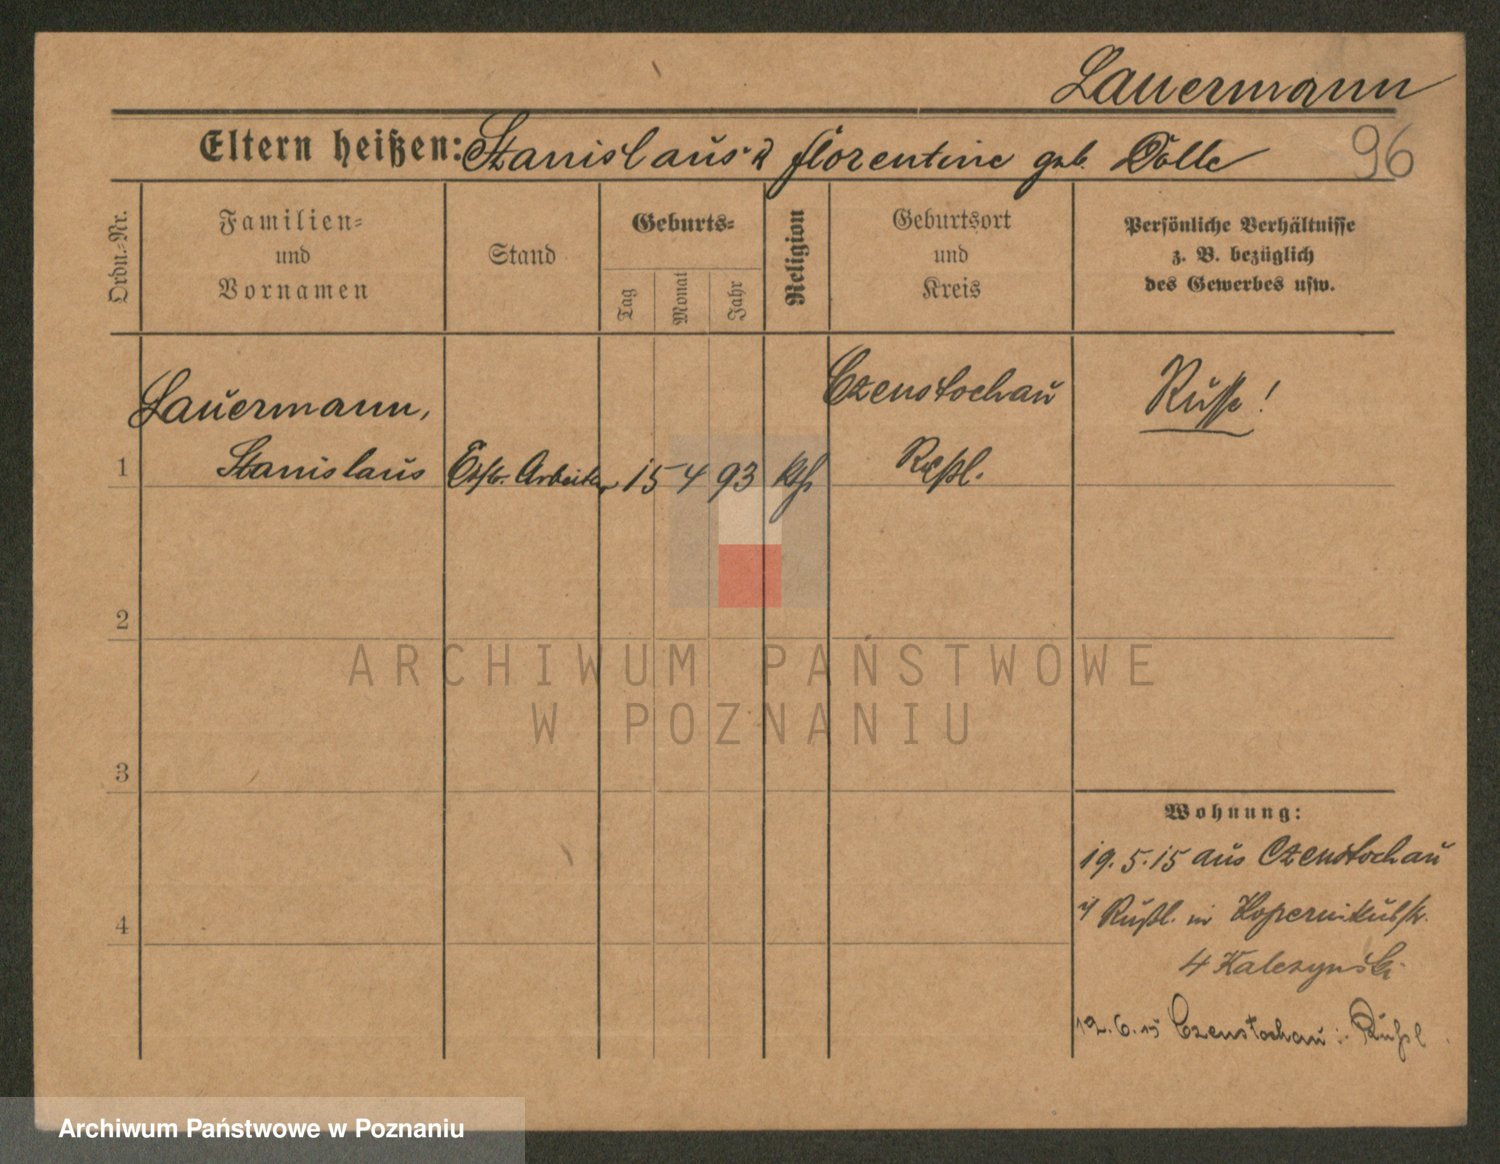 Lauermann
Eltern heißen: Stanislaus u florentine geb. Dolle
96
Ordn.-Nr.
Familien-
und
Vornamen
Stand
Geburts-
Tag
Monat
Jahr
Religion
Geburtsort
und
Kreis
Persönliche Verhältnisse
z. B. bezüglich
des Gewerbes usw.
Lauermann,
Czenstochau
Russe!
1
Stanislaus
Arbeiter
15
4
93
kth
Rußl.
2
ARCHIWUM PAŃSTWOWE
W POZNANIU
3
Wohnung:
19.5.15 aus Czenstochau
i/ Rußl. in Kopernikusstr.
4
4 Kalczynski
12.6.15 Czenstochau i. Rußl
Archiwum Państwowe w Poznaniu